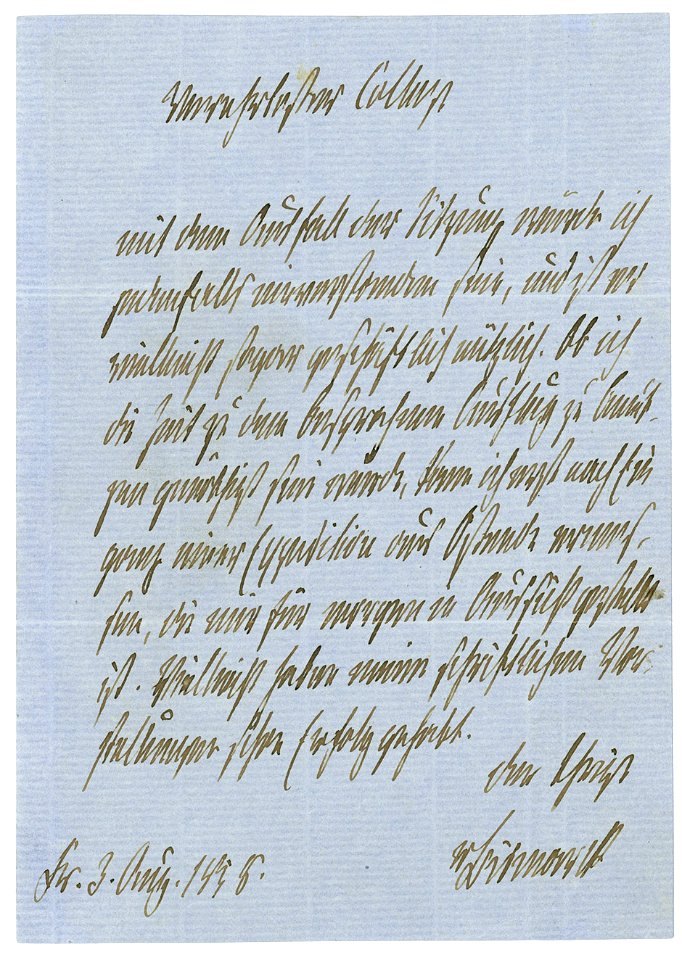 Verehrtester College
mit dem Ausfall der Sitzung würde ich
jedenfalls einverstanden sein, und ist er
vielleicht sogar geschäftlich nützlich. Ob ich
die Zeit zu dem besprochenen Ausflug zu benut-
zen genöthigt sein würde, kann ich erst nach Ein
gang einer Expedition aus Ostende ermes-
sen, die mir für morgen in Aussicht gestellt
ist. Vielleicht haben meine schriftlichen Vor-
stellungen schon Erfolg gehabt.
der Ihrige
vBismarck
Fr. 3. Aug. 185